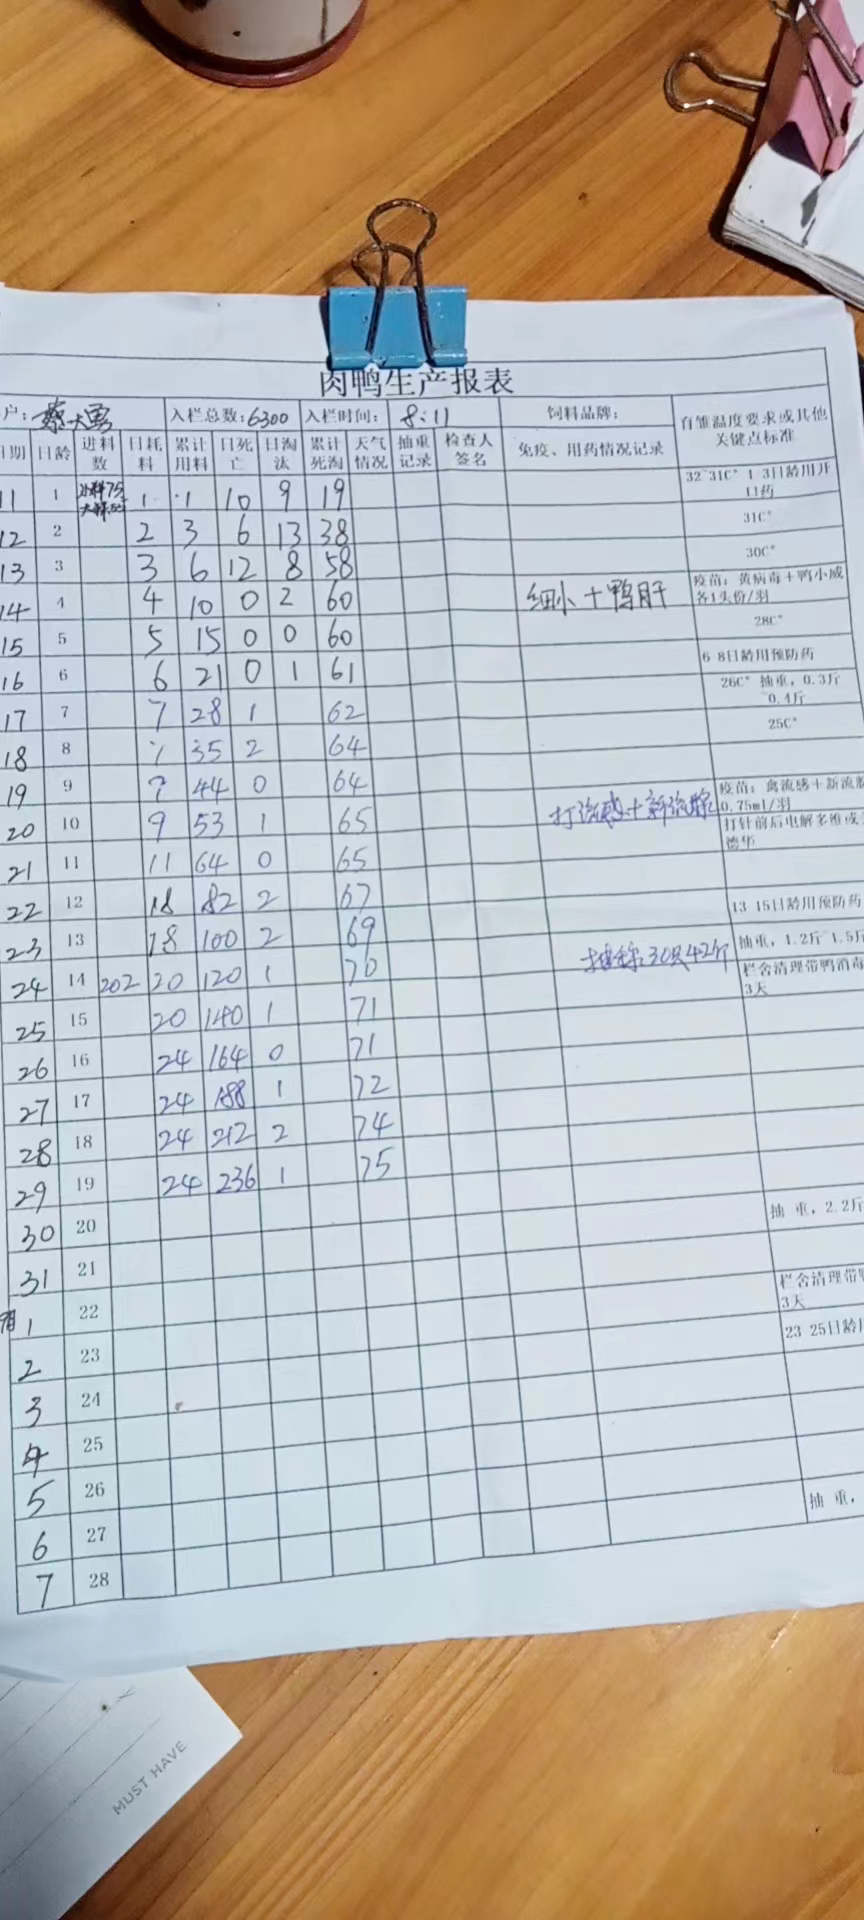 肉鸭生产报表
户: 蔡大勇 入栏总数:6300 入栏时间: 8:11 饲料品牌: 育雏温度要求或其他关键点标准
日期 日龄 进料数 日耗料 累计用料 日死亡 日淘汰 累计死淘 天气情况 抽重记录 检查人签名 免疫、用药情况记录
11 1 1 1 10 9 19 32~31C° 1-3日龄用开口药
12 2 2 3 6 13 38 31C°
13 3 3 6 12 8 58 30C°
14 4 4 10 0 2 60 细小+鸭肝 疫苗: 黄病毒+鸭小威各1头份/羽
15 5 5 15 0 0 60 28C°
16 6 6 21 0 1 61 6-8日龄用预防药
17 7 7 28 1 62 26C° 抽重, 0.3斤~0.4斤
18 8 7 35 2 64 25C°
19 9 44 0 64
20 10 9 53 1 65 打流感+新流腺 疫苗: 禽流感+新流腺 0.75ml/羽
21 11 11 64 0 65 打针前后电解多维或 德华
22 12 18 82 2 67
23 13 18 100 2 69 13-15日龄用预防药
24 14 202 20 120 1 70 抽称:30只42斤 抽重, 1.2斤~1.5斤
25 15 20 140 1 71 栏舍清理带鸭消毒 3天
26 16 24 164 0 71
27 17 24 188 1 72
28 18 24 212 2 74
29 19 24 236 1 75
30 20
31 21 抽 重, 2.2斤
1 22
2 23 栏舍清理带鸭 3天
3 24 23-25日龄
4 25
5 26
6 27
7 28 抽 重,
MUST HAVE